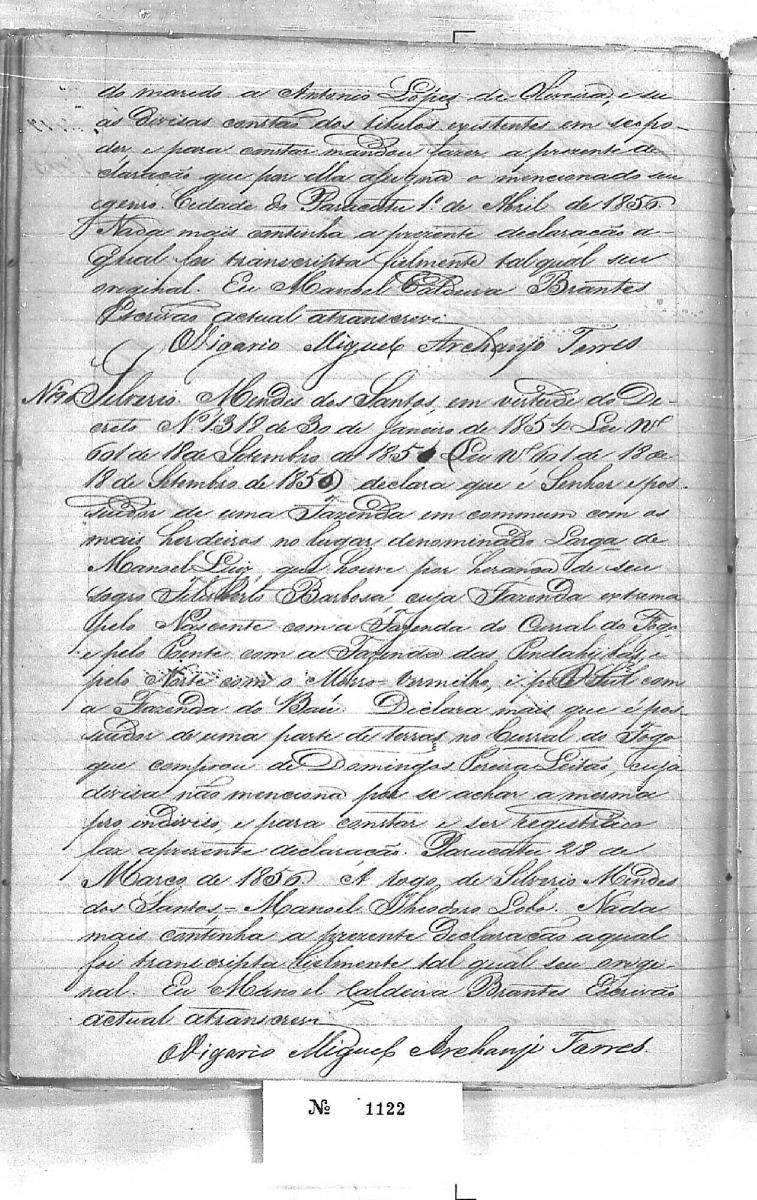 do marido a Antonio Lopes de Oliveira, e su
as Divisas constão dos titulos existentes em seo po-
der, e para constar mandou fazer a prezente de
claração que por ella assigna o mencionado seu
genro. Cidade do Paracatu 1º de Abril de 1856.
Nada mais continha a prezente declaração a-
qual foi transcripta fielmente tal quál seu
original. Eu Manoel Caldeira Brantes
Escrivão actual atranscrevi
O Vigario Miguel Archanjo Torres
Silverio Mendes dos Santos, em virtude do De-
creto Nº 1318 de 30 de Janeiro de 1854 Lei Nº
601 de 18 de Setembro de 1850 (Lei Nº 601 de 18 de
18 de Setembro de 1850) declara que é Senhor e pos-
suidor de uma Fazenda em commum com os
mais herdeiros no lugar denominado Larga de
Manoel Luiz que houve por herança de seu
sogro Felisberto Barbosa cuja Fazenda extrema
pelo Nascente com a Fazenda do Corral do Fogo
e pelo Poente com a Fazenda das Pindahibas, e
pelo Norte com o Morro-Vermelho, e pelo Sul com
a Fazenda do Baú. Declara mais que é pos-
suidor de uma parte de terras no Curral do Fogo
que comprou de Domingos Pereira Leitão, cuja
divisa não menciona por se achar a mesma
pro indiviso, e para constar e ser registrado
faz aprezente declaração. Paracatu 28 de
Março de 1856. A rogo de Silverio Mendes
dos Santos - Manoel Theodoro Lobo. Nada
mais continha a prezente Declaração aqual
foi transcripta fielmente tal quál seu origi-
nal. Eu Manoel Caldeira Brantes Escrivão
actual atranscrevi
O Vigario Miguel Archanjo Torres.
Nº 1122